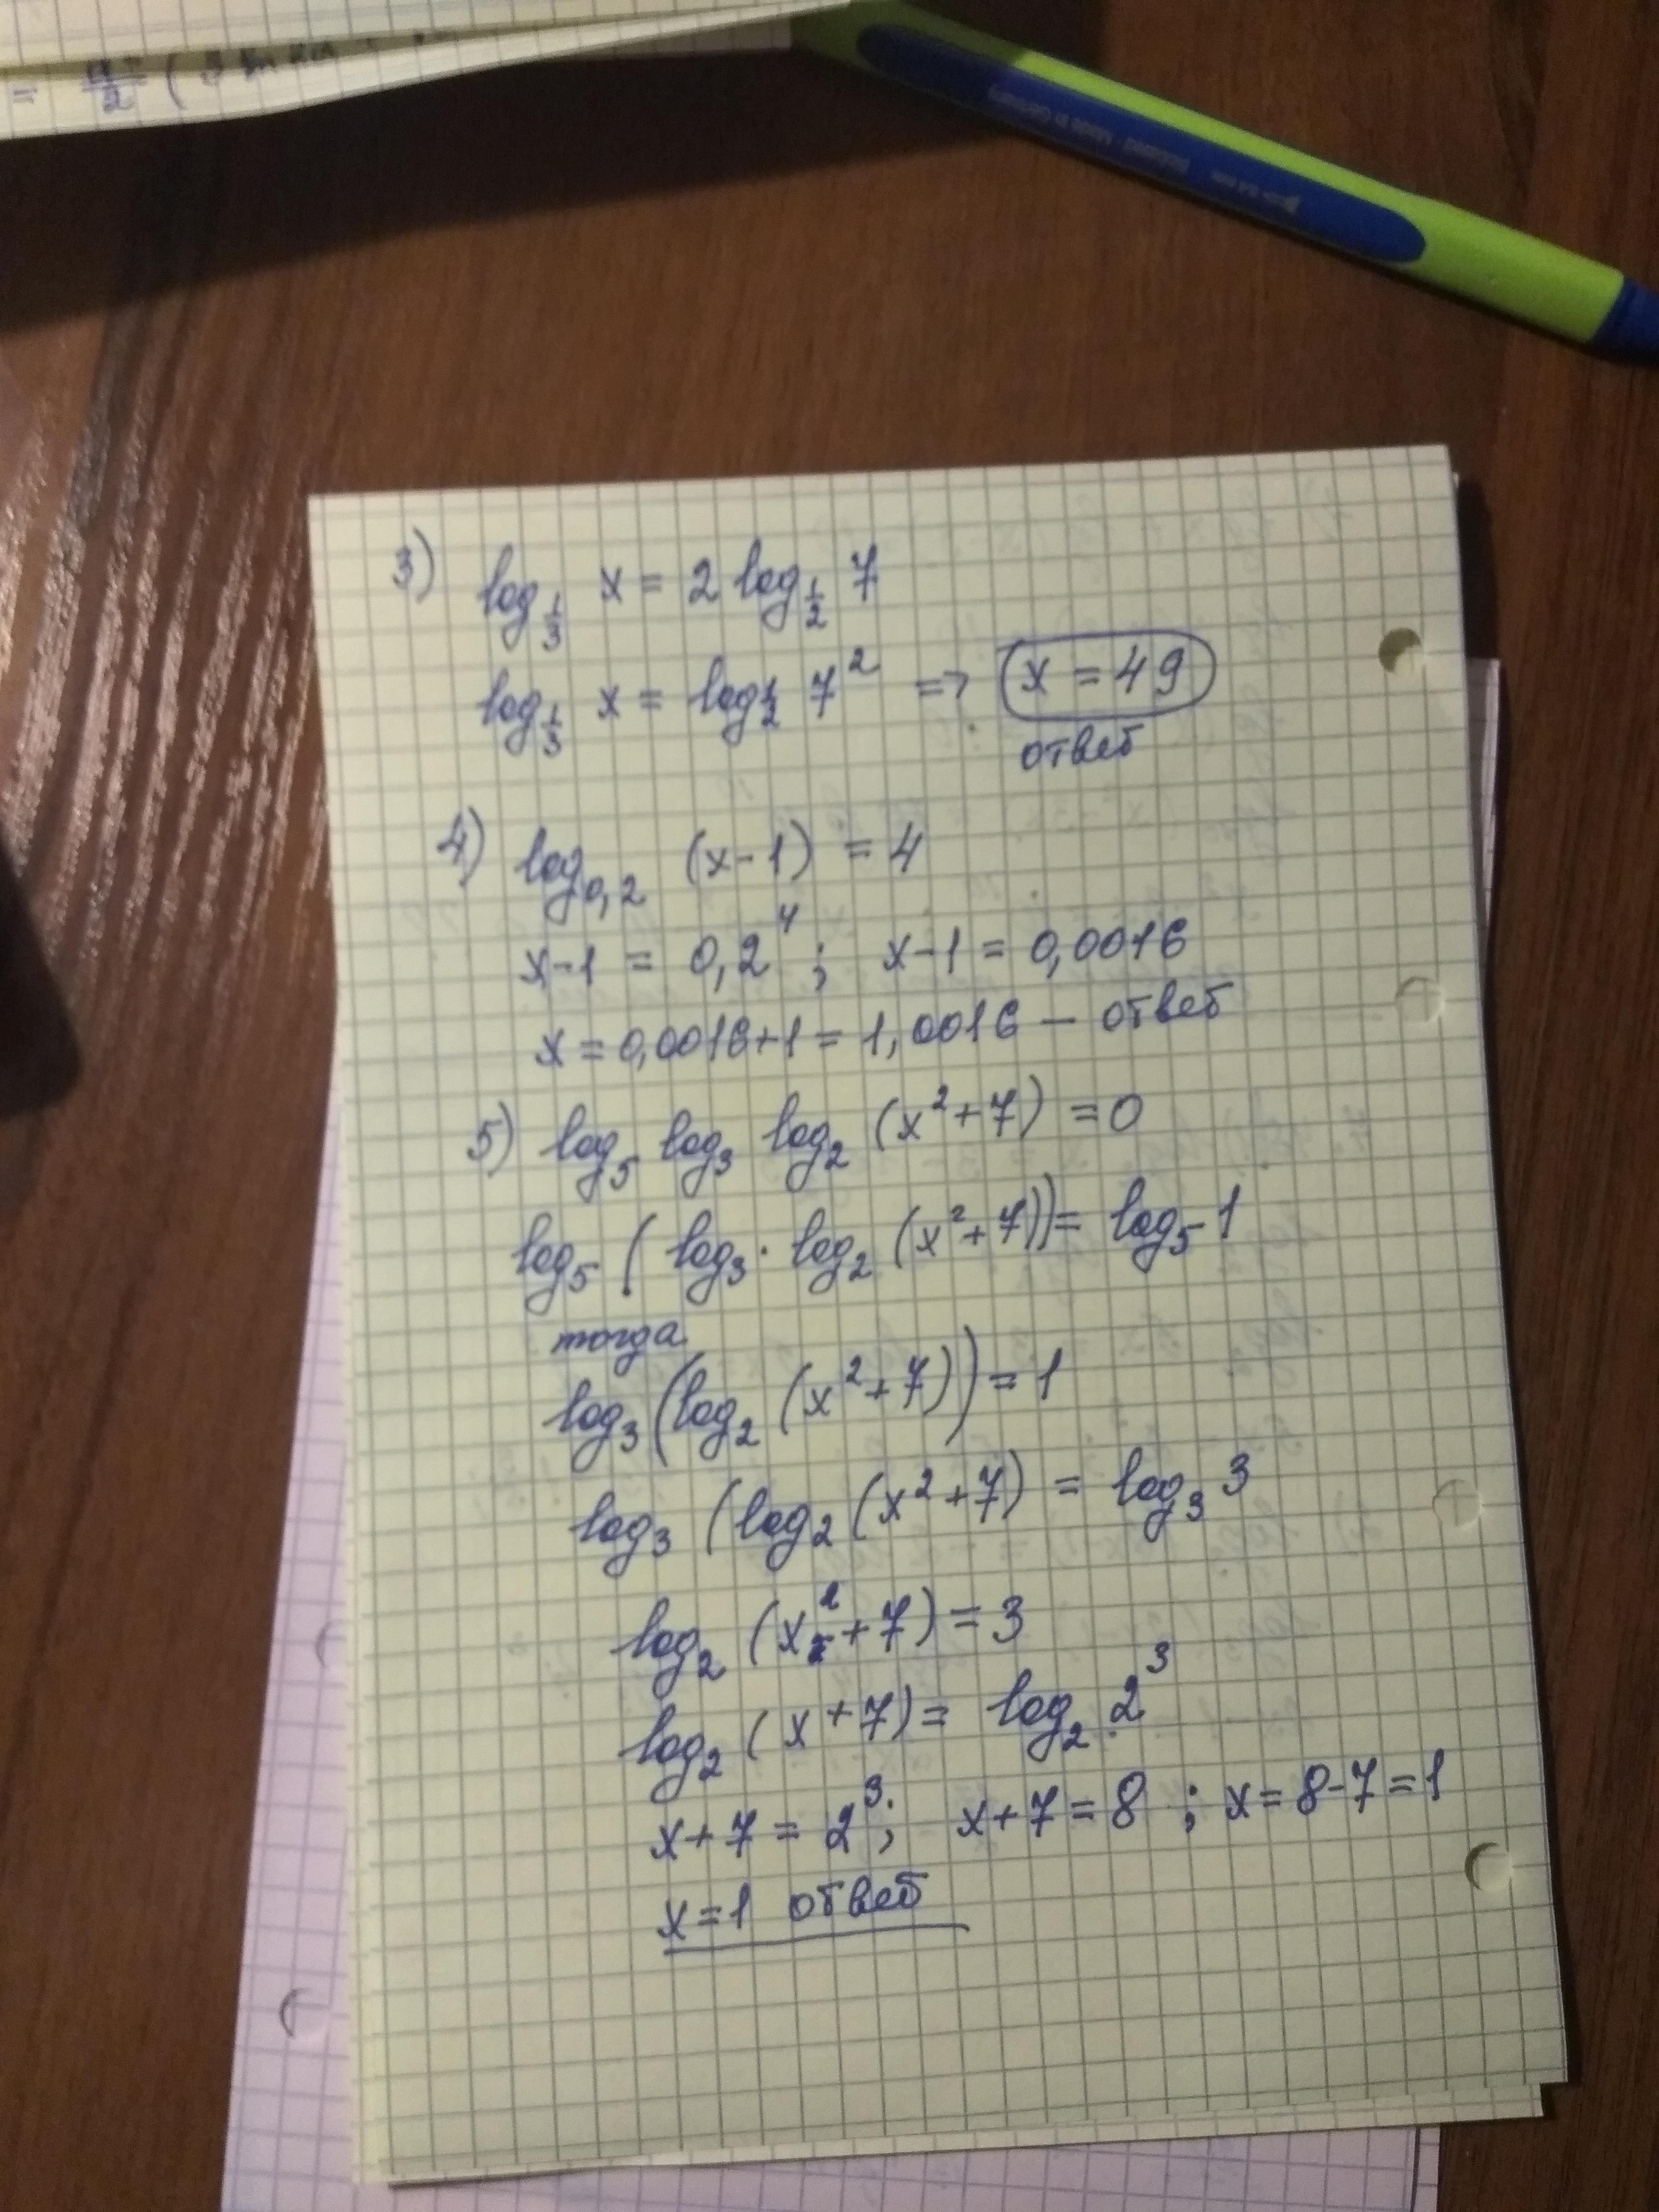 = a²/2 (
Stabilo · Made in Germany
3) log_{1/3} x = 2 log_{1/2} 7
log_{1/3} x = log_{1/2} 7² => x = 49
ответ
4) log_{0,2} (x-1) = 4
x-1 = 0,2⁴ ; x-1 = 0,0016
x = 0,0016+1 = 1,0016 — ответ
5) log₅ log₃ log₂ (x²+7) = 0
log₅ ( log₃ · log₂ (x²+7)) = log₅ 1
тогда
log₃ (log₂ (x²+7)) = 1
log₃ (log₂ (x²+7) = log₃ 3
log₂ (x²+7) = 3
log₂ (x+7) = log₂ 2³
x+7 = 2³; x+7 = 8 ; x = 8-7 = 1
x=1 ответ